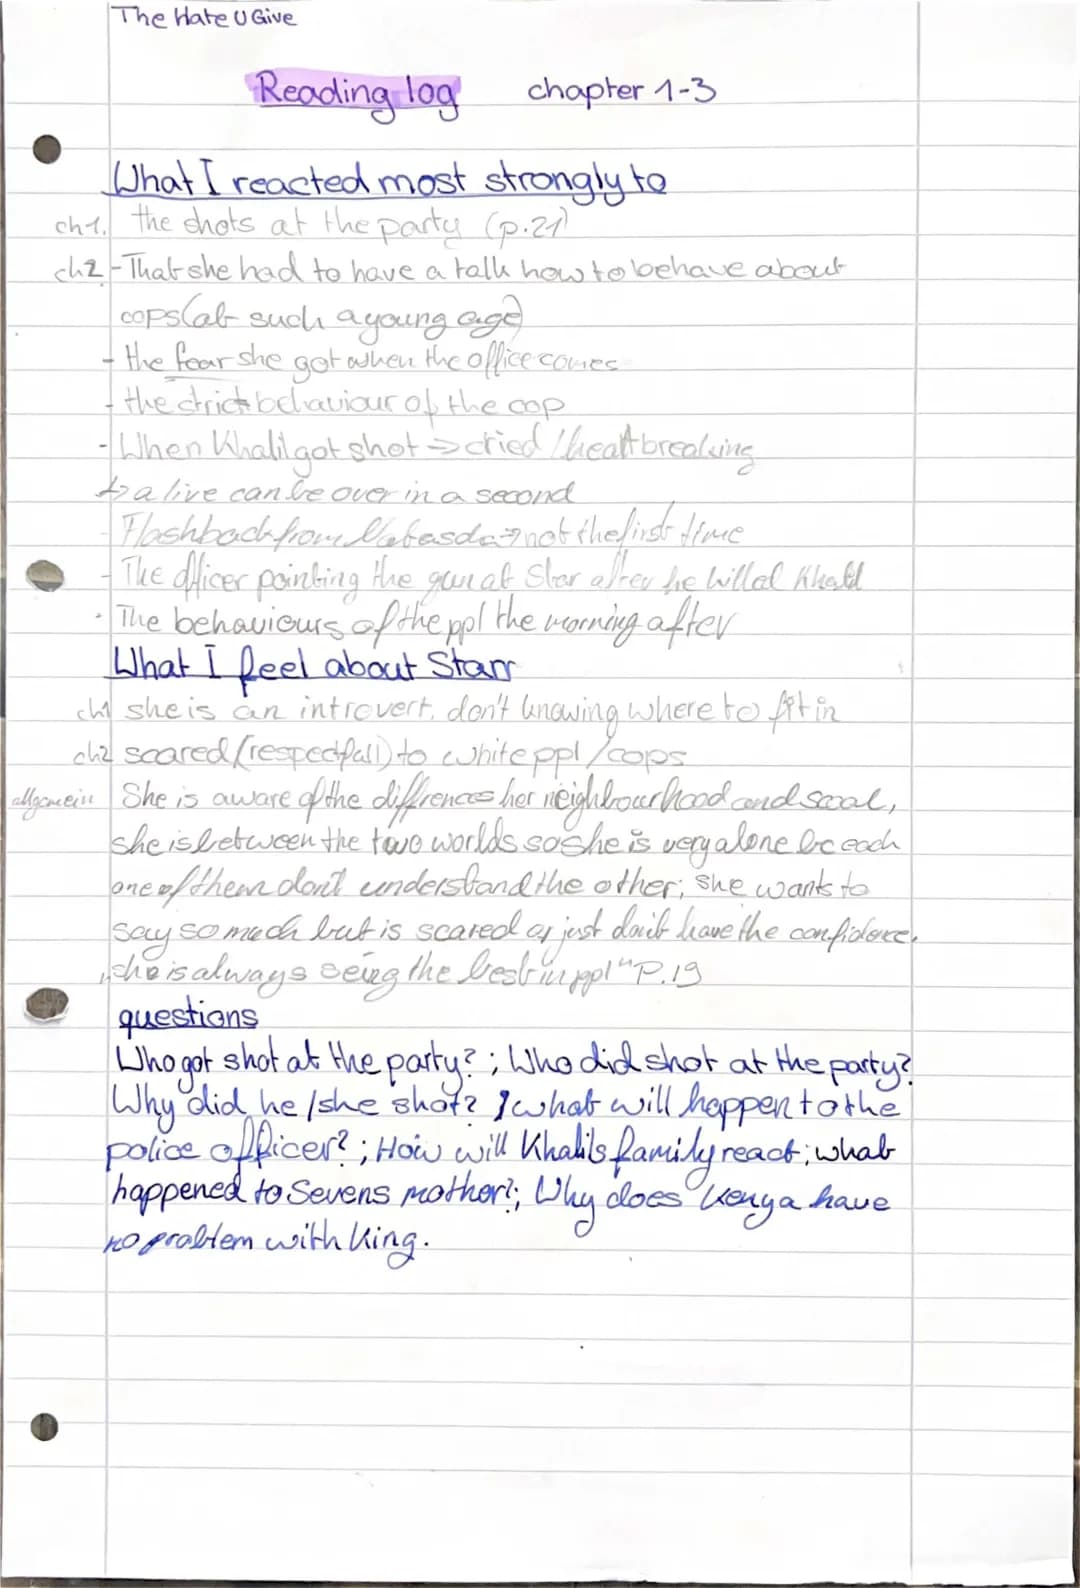 The Hate U Give
Reading log chapter 1-3
What I reacted most strongly to
ch1. the shots at the party (p.21)
ch2 - That she had to have a talk how to behave about
cops (at such a young age)
- the fear she got when the office comes
- the strict behaviour of the cop
- When Khalil got shot → cried / heartbreaking
↳ a live can be over in a second
- Flashback from → not the first time
- The officer pointing the gun at Star after he killed Khalil
- The behaviours of the ppl the morning after
What I feel about Starr
ch1 she is an introvert, don't knowing where to fit in
ch2 scared (respectfall) to white ppl / cops
allgemein She is aware of the diffrences her neighbourhood and scool,
she is between the two worlds so she is very alone bc each
one of them don't understand the other; she wants to
say so much but is scared or just don't have the confidence.
"she is always seing the best in ppl" P.19
questions
Who got shot at the party? ; Who did shot at the party?
Why did he / she shot? ; what will happen to the
police officer? ; How will Khalil's family react; what
happened to Sevens mother?; Why does Kenya have
no problem with King.